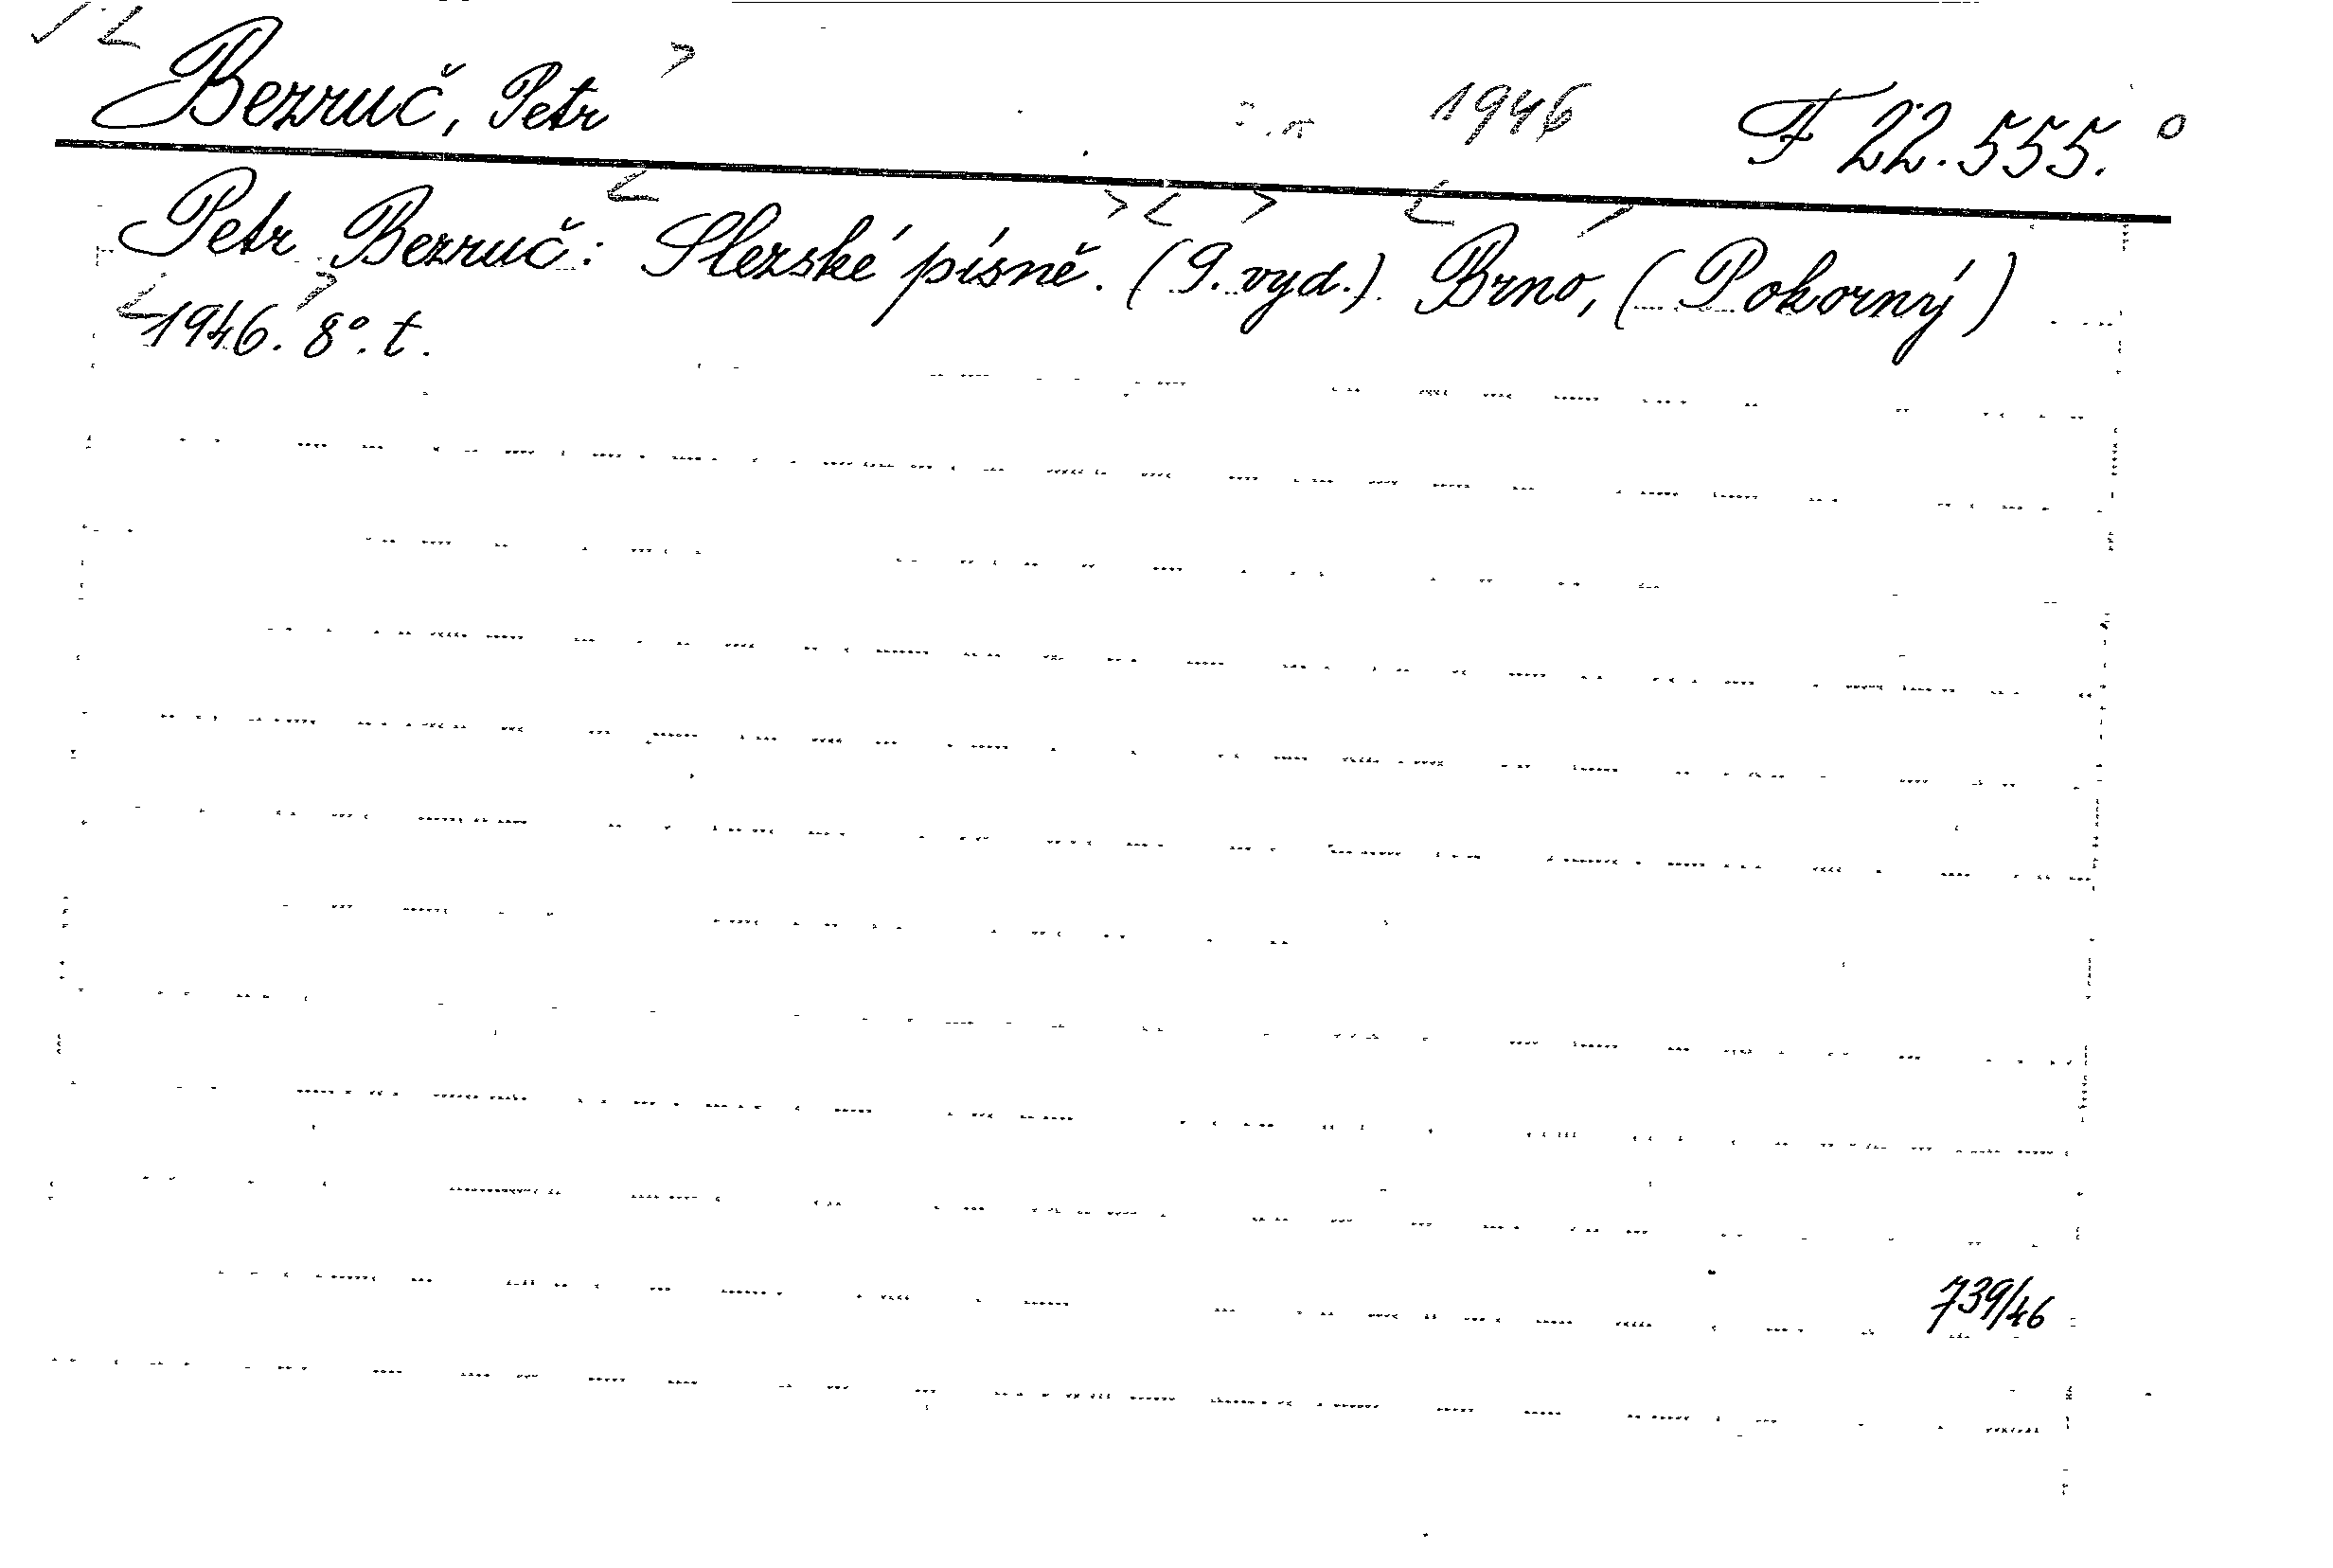 Bezruč, Petr 1946 F 22.555.°
Petr Bezruč: Slezské písně. (9. vyd.). Brno, (Pokorný)
1946. 8°. t.
739/46